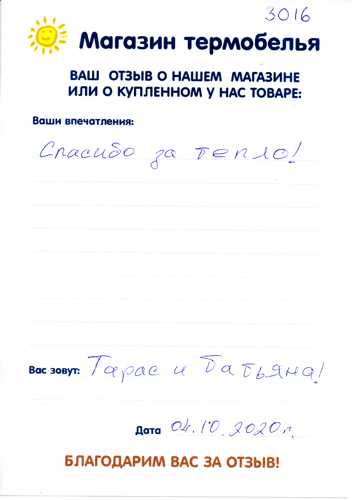 3016
Магазин термобелья
ВАШ ОТЗЫВ О НАШЕМ МАГАЗИНЕ
ИЛИ О КУПЛЕННОМ У НАС ТОВАРЕ:
Ваши впечатления:
Спасибо за тепло!
Вас зовут: Тарас и Татьяна!
Дата 04.10.2020г.
БЛАГОДАРИМ ВАС ЗА ОТЗЫВ!